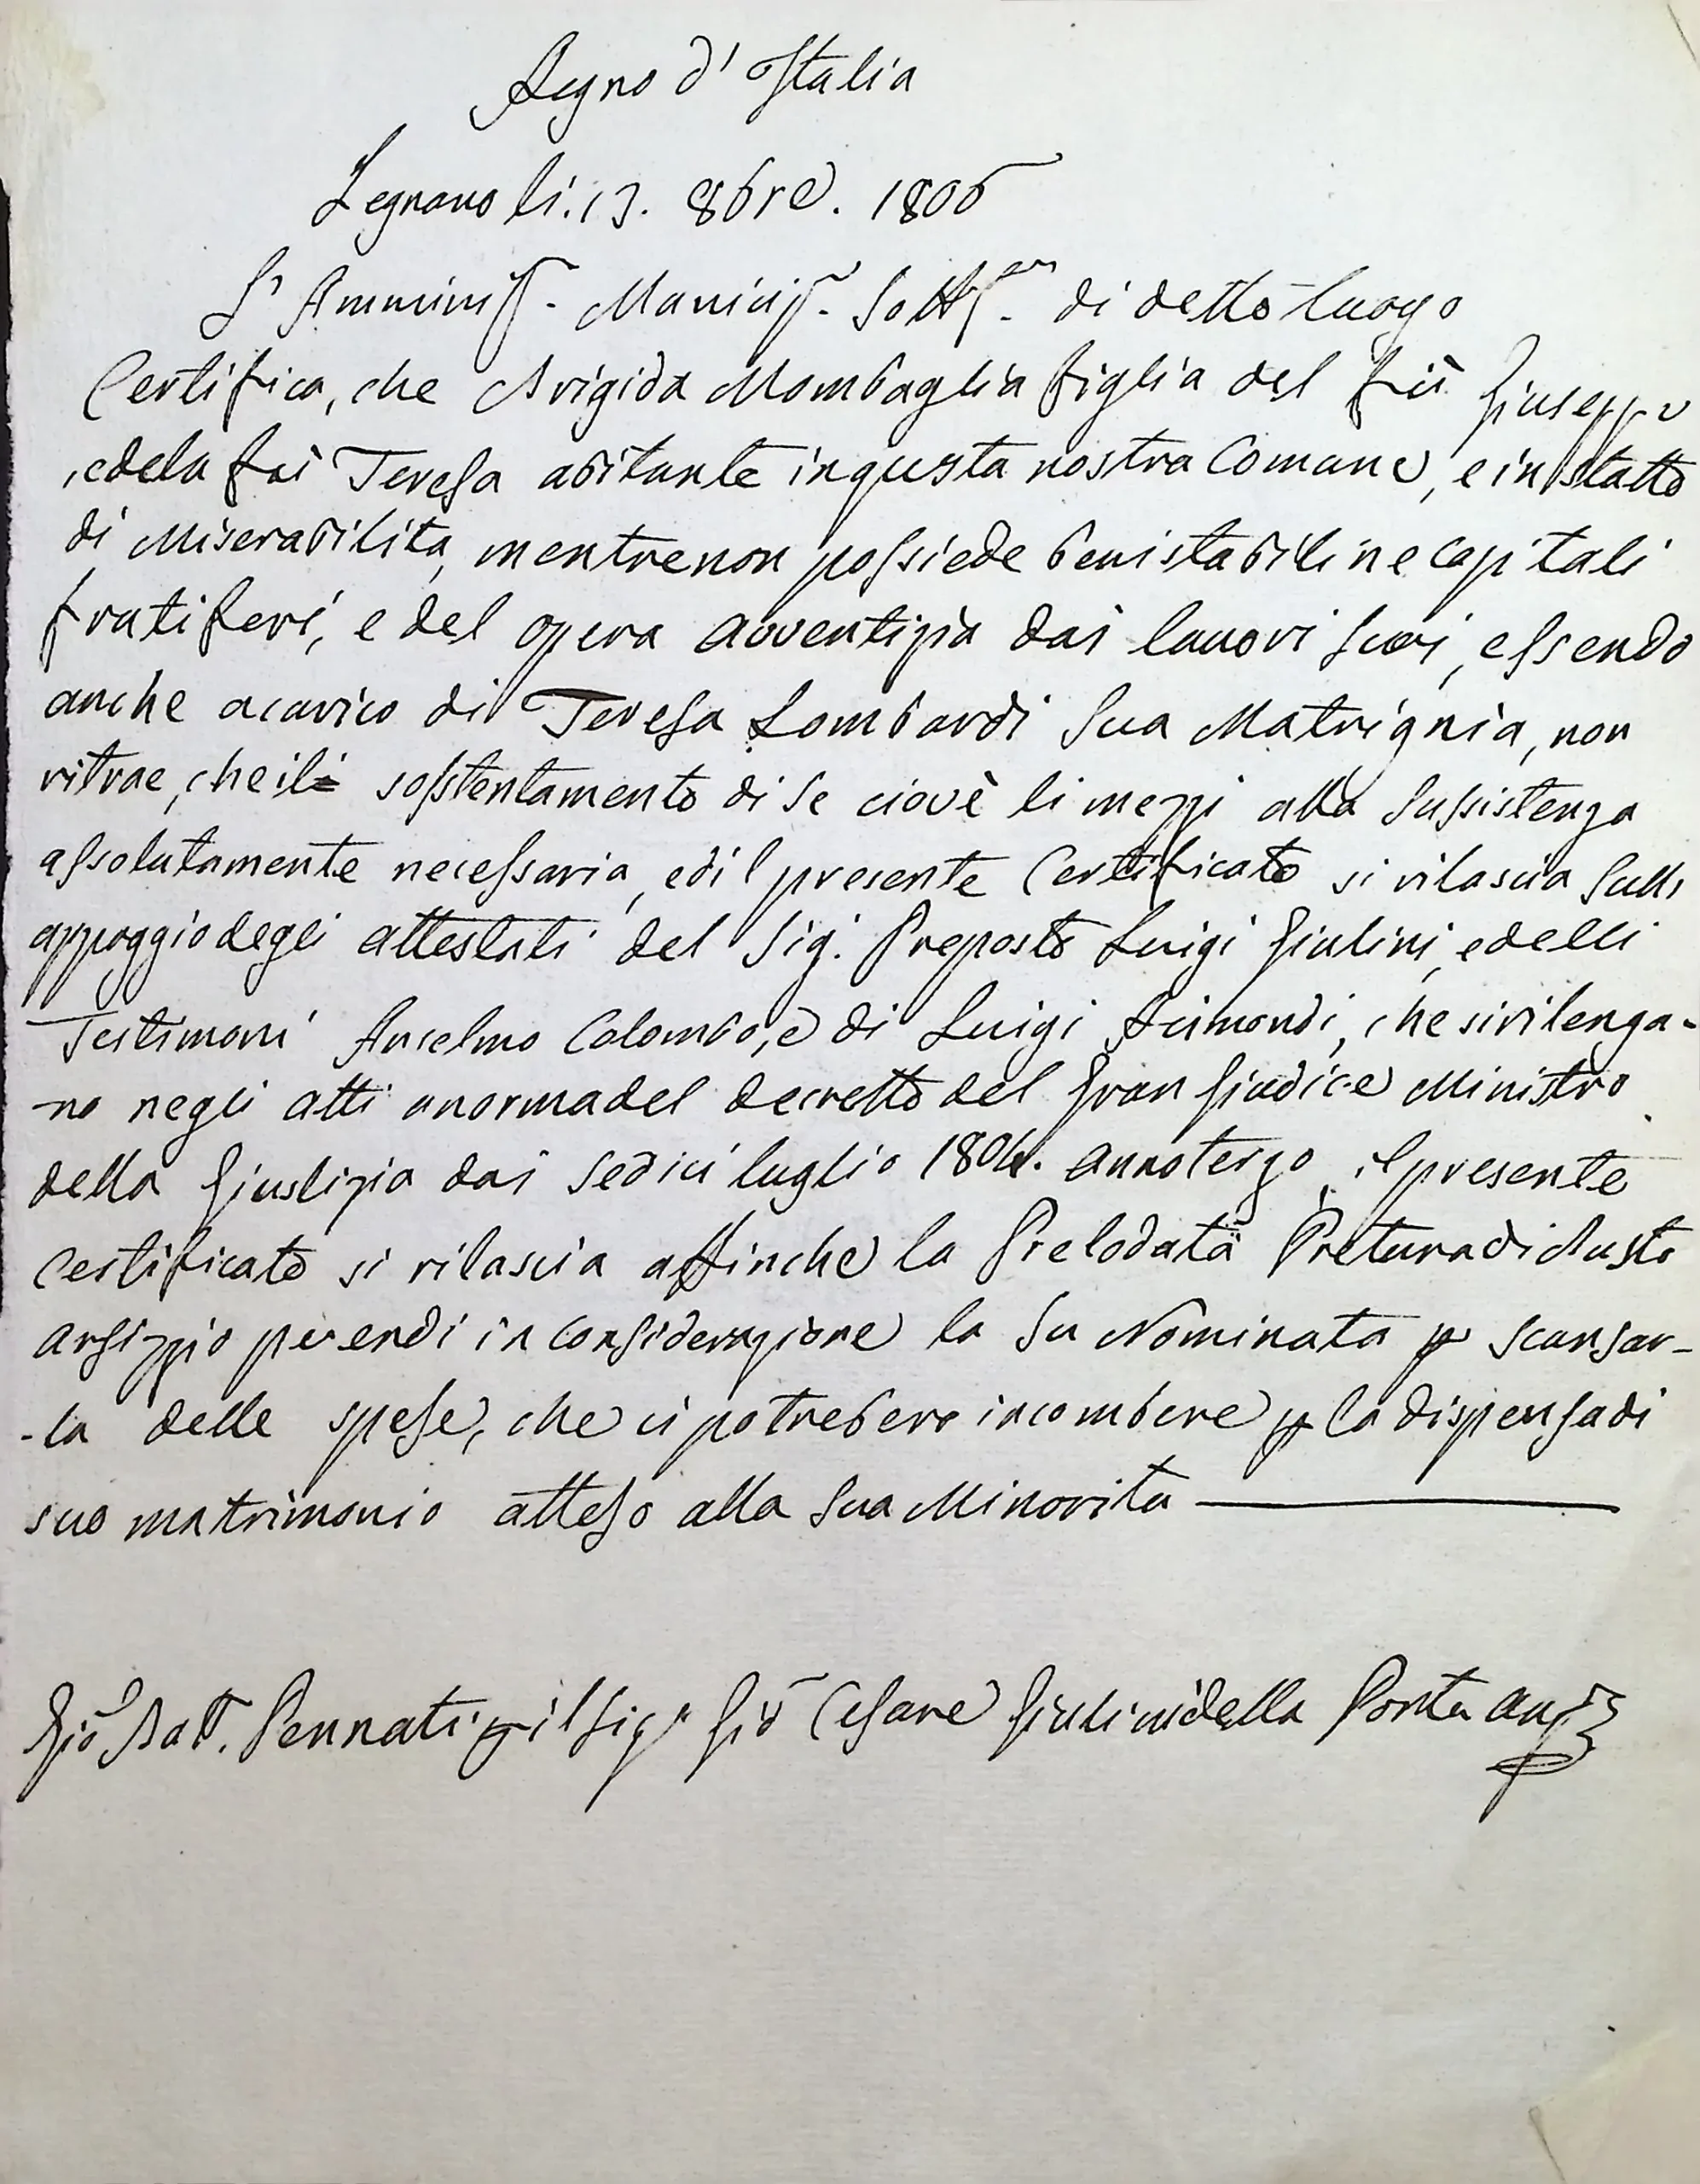 Regno d'Italia
Legnano li. 13. 8bre. 1806
L'Amminist. Municip. Sottos. di detto luogo
Certifica, che Brigida Mombaglia figlia del fù Giuseppe
, e dela fù Teresa abitante in questa nostra Comune, e in statto
di Miserabilita, mentre non possiede beni stabili ne capitali
frutiferi, e del opera avventizia dai lavori suoi, essendo
anche acarico di Teresa Lombardi sua Matrignia, non
ritrae, che il sosstentamento di se ciovè li mezzi alla sussistenza
assolutamente necessaria, ed il presente Certificato si rilascia sull
appoggio degli attestati del Sig. Preposto Luigi Giulini, e delli
Testimoni Anselmo Colombo, e di Luigi Raimondi, che si ritenga-
-no negli atti a norma del decretto del Gran Giudice Ministro
della Giustizia dai sedici luglio 1804. anno terzo, il presente
Certificato si rilascia affinche la Prelodata Pretura di Busto
arsizzio perendi in considerazione la su Nominata p scansar-
-la delle spese, che ci potrebero incombere p la dispensa di
suo matrimonio atteso alla sua Minorita
Gio Bat. Pennati p il Sigr Gio Cesare Giulini della Porta